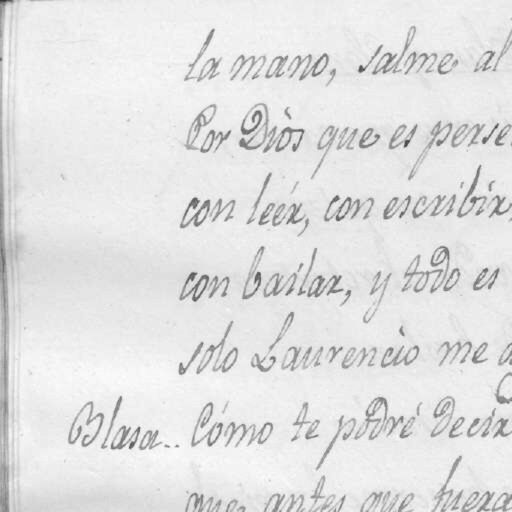 la mano, salme al
Por Diòs que es perse
con leér, con escribir,
con bailar, y todo es
solo Laurencio me
Blasa.. Cómo te podré decir
que antes que fuera